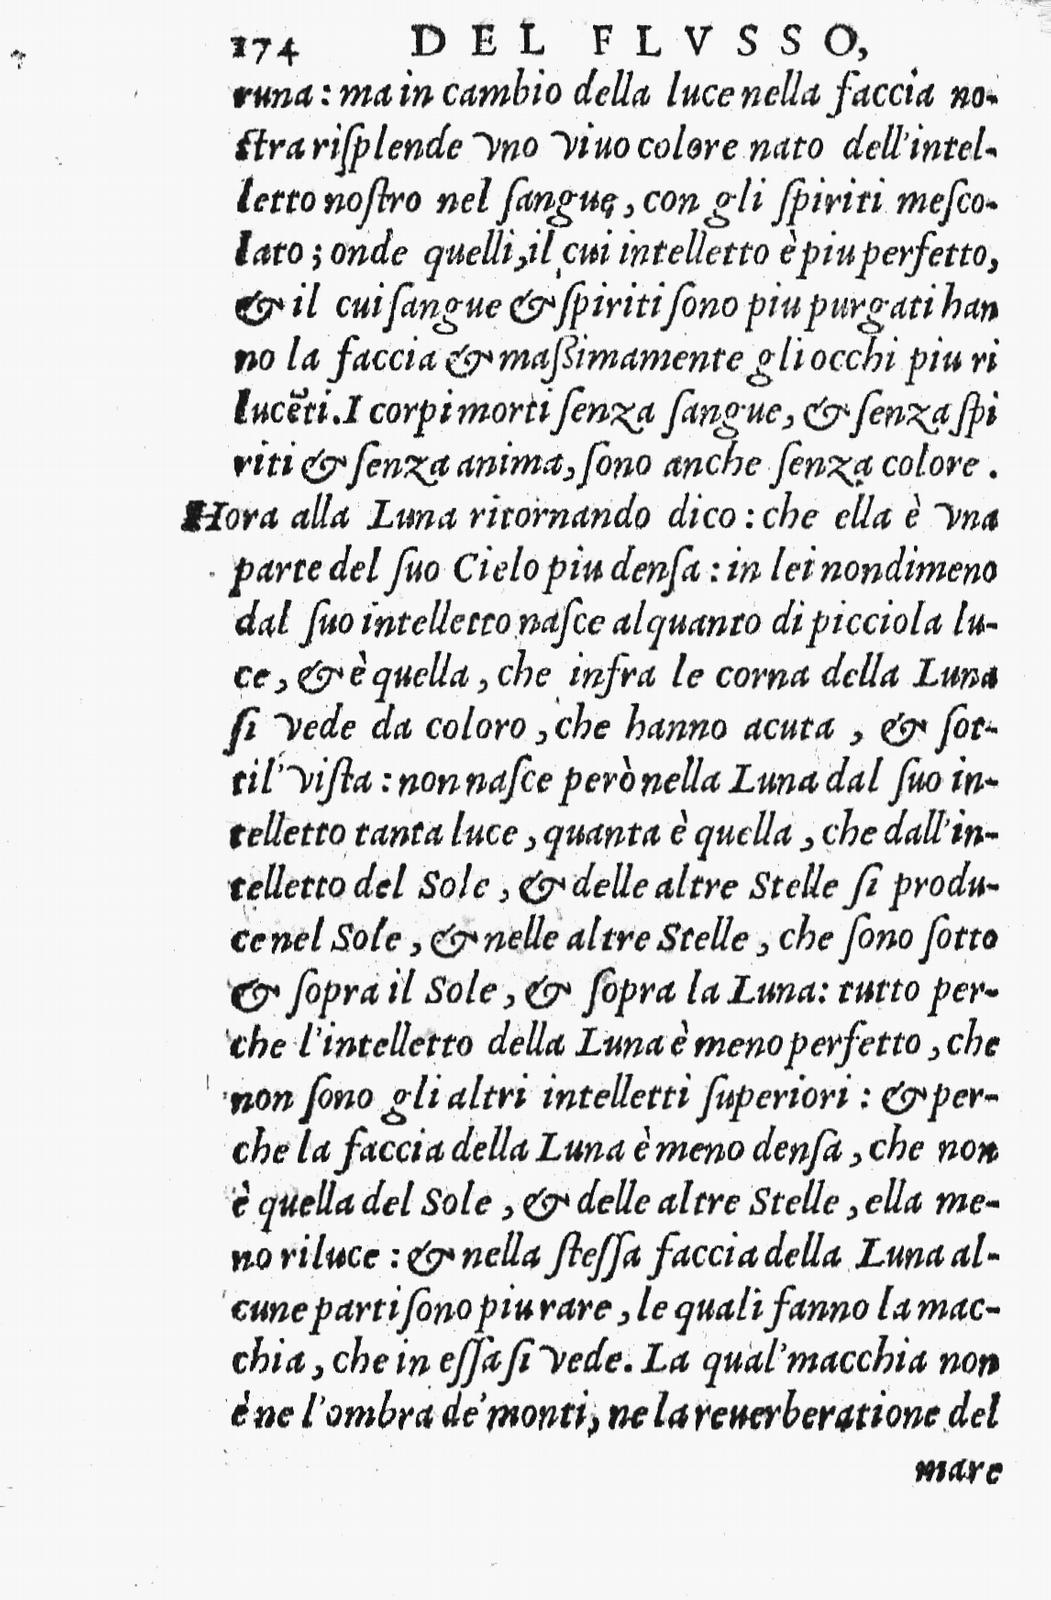 174 DEL FLVSSO,
runa: ma in cambio della luce nella faccia no-
ſtra riſplende vno viuo colore nato dell'intel-
letto noſtro nel ſangue, con gli ſpiriti meſco-
lato; onde quelli, il cui intelletto è piu perfetto,
& il cui ſangue & ſpiriti ſono piu purgati han
no la faccia & maſſimamente gli occhi piu ri
lucẽti. I corpi morti ſenza ſangue, & ſenza ſpi
riti & ſenza anima, ſono anche ſenza colore.
Hora alla Luna ritornando dico: che ella è vna
parte del ſuo Cielo piu denſa: in lei nondimeno
dal ſuo intelletto naſce alquanto di picciola lu-
ce, & è quella, che infra le corna della Luna
ſi vede da coloro, che hanno acuta, & ſot-
til' viſta: non naſce però nella Luna dal ſuo in-
telletto tanta luce, quanta è quella, che dall'in-
telletto del Sole, & delle altre Stelle ſi produ-
ce nel Sole, & nelle altre Stelle, che ſono ſotto
& ſopra il Sole, & ſopra la Luna: tutto per-
che l'intelletto della Luna è meno perfetto, che
non ſono gli altri intelletti ſuperiori: & per-
che la faccia della Luna è meno denſa, che non
è quella del Sole, & delle altre Stelle, ella me-
no riluce: & nella ſteſſa faccia della Luna al-
cune parti ſono piu rare, le quali fanno la mac-
chia, che in eſſa ſi vede. La qual' macchia non
è ne l'ombra de' monti, ne la reuerberatione del
mare